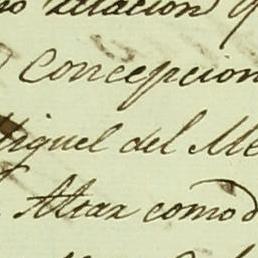 relacion q
Concepcion
Miguel del Me
Altar como d